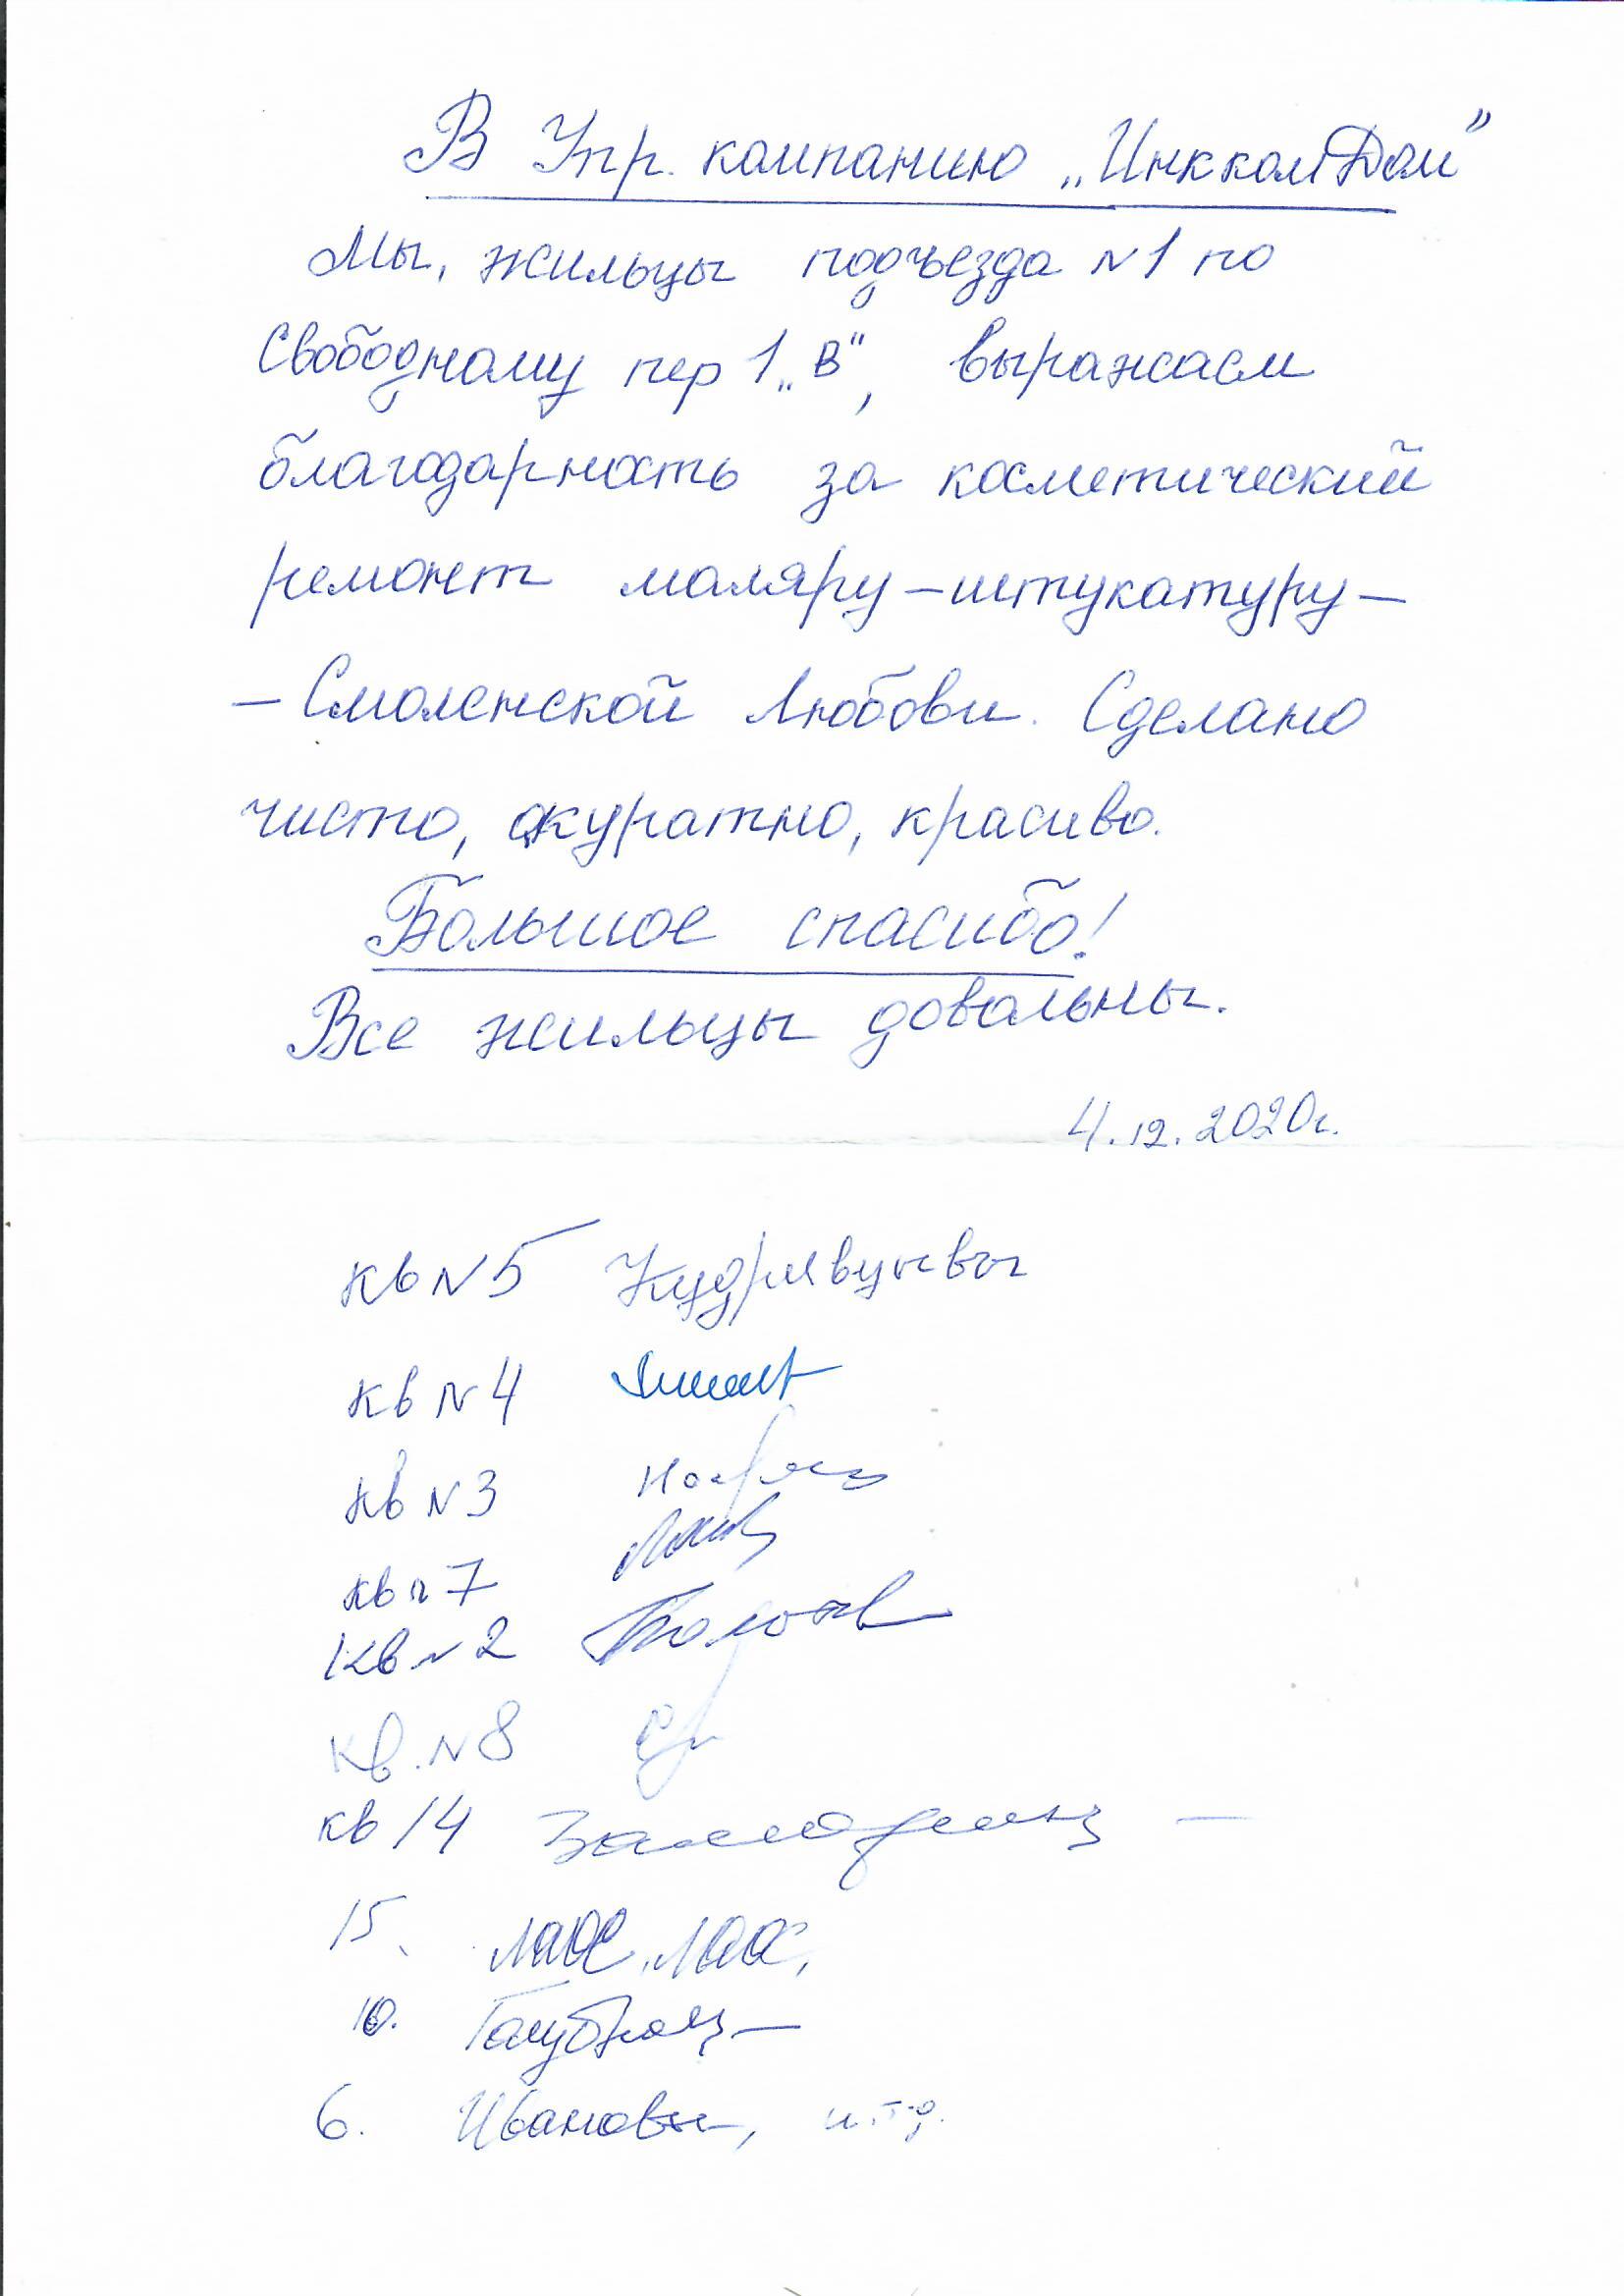 В Упр. компанию „ИнккомДом"
Мы, жильцы подъезда N1 по
Свободному пер 1 „В", выражаем
благодарность за косметический
ремонт маляру – штукатуру –
– Смоленской Любови. Сделано
чисто, акуратно, красиво.
Большое спасибо!
Все жильцы довольны.
4.12.2020г.
кв N5 Кудрявцевы
кв N4
кв N3
кв N 7
Кв N 2
Кв. N8
кв 14
15.
10.
6. Ивановы, и.т.д.